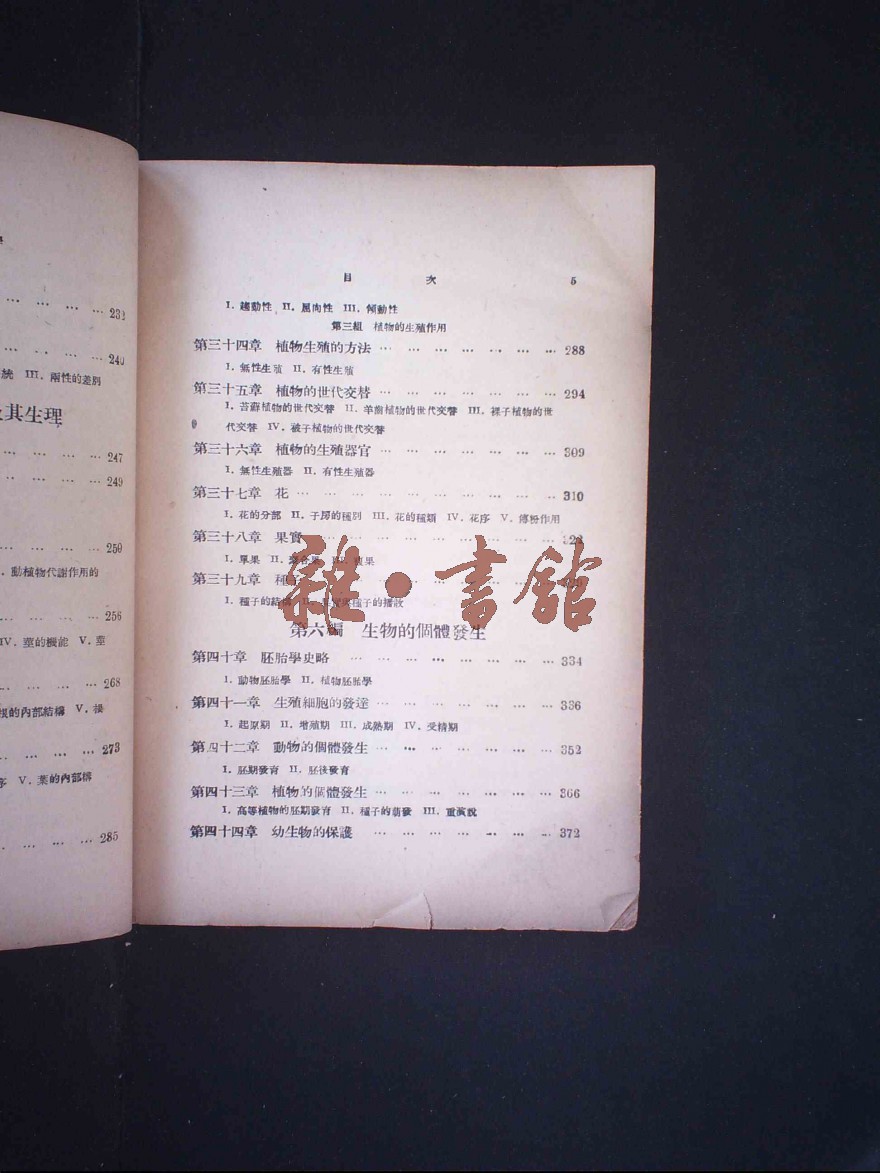 … … … … 232
… … … … 240
統 III. 兩性的差別
及其生理
… … … … 247
… … … … 249
… … … … 250
動植物代謝作用的
… … … … 256
IV. 莖的機能 V. 莖
… … … … 268
根的內部結構 V. 根
… … … … 273
序 V. 葉的內部構
… … … … 285
目 次 5
I. 趨動性 II. 屈向性 III. 傾動性
第三組 植物的生殖作用
第三十四章 植物生殖的方法 … … … … … … … 288
I. 無性生殖 II. 有性生殖
第三十五章 植物的世代交替 … … … … … … … 294
I. 苔蘚植物的世代交替 II. 羊齒植物的世代交替 III. 裸子植物的世
代交替 IV. 被子植物的世代交替
第三十六章 植物的生殖器官 … … … … … … … 309
I. 無性生殖器 II. 有性生殖器
第三十七章 花 … … … … … … … … … … 310
I. 花的分部 II. 子房的種別 III. 花的種類 IV. 花序 V. 傳粉作用
第三十八章 果實 … … … … … … … … …
I. 單果 II. 聚合果
第三十九章 種子 … … … … … … … … …
I. 種子的結構 II. 果實與種子的播散
雜·書館
第六編 生物的個體發生
第四十章 胚胎學史略 … … … … … … … … 334
I. 動物胚胎學 II. 植物胚胎學
第四十一章 生殖細胞的發達 … … … … … … … 336
I. 起原期 II. 增殖期 III. 成熟期 IV. 受精期
第四十二章 動物的個體發生 … … … … … … … 352
I. 胚期發育 II. 胚後發育
第四十三章 植物的個體發生 … … … … … … … 366
I. 高等植物的胚期發育 II. 種子的萌發 III. 重演說
第四十四章 幼生物的保護 … … … … … … … 372